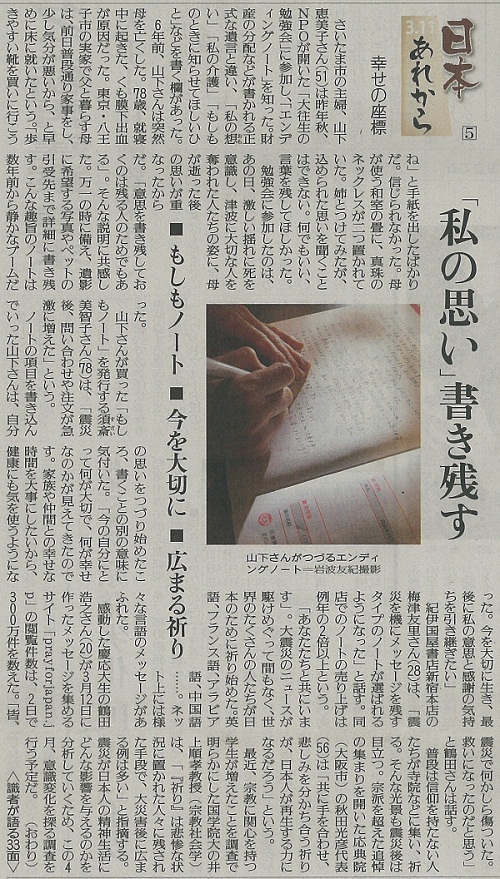 3.11
日本
あれから
5
幸せの座標
「私の思い」書き残す
■ もしもノート ■ 今を大切に ■ 広まる祈り
さいたま市の主婦、山下
恵美子さん(51)は昨年秋、
NPOが開いた「大往生の
勉強会」に参加し、「エンデ
ィングノート」を知った。財
産の分配などが書かれる正
式な遺言と違い、「私の想
い」「私の介護」「もしも
のときに知らせてほしいひ
と」などを書く欄があった。
6年前、山下さんは突然
母を亡くした。78歳、就寝
中に起きた、くも膜下出血
が原因だった。東京・八王
子市の実家で父と暮らす母
は、前日普段通り家事をし、
少し気分が悪いから、と早
めに床に就いたという。「歩
きやすい靴を買いに行こう
ね」と手紙を出したばかり
だ。信じられなかった。母
が使う和室の畳に、真珠の
ネックレスが二つ置かれて
いた。姉とつけてみたが、
込められた思いを聞くこと
はできない。何でもいい、
言葉を残してほしかった。
勉強会に参加したのは、
あの日、激しい揺れに死を
意識し、津波に大切な人を
奪われた人たちの姿に、母
が逝った後
の思いが重
なったから
だ。「意思を書き残してお
くのは残る人のためでもあ
る」。そんな説明に共感し
た。万一の時に備え、遺影
に希望する写真やペットの
引受先まで詳細に書き残
す。こんな趣旨のノートは
数年前から静かなブームだ
った。
山下さんが買った「もし
もノート」を発行する須斎
美智子さん(78)は、「震災
後、問い合わせや注文が急
激に増えた」という。
ノートの項目を書き込ん
でいった山下さんは、自分
の思いをつづり始めたこ
ろ、書くことの別の意味に
気付いた。「今の自分にと
って何が大切で、何が幸せ
なのかが見えてきたので
す。家族や仲間との幸せな
時間を大事にしたいから、
健康にも気を使うようにな
山下さんがつづるエンディ
ングノート=岩波友紀撮影
った。今を大切に生き、最
後に私の意思と感謝の気持
ちを引き継ぎたい」
紀伊国屋書店新宿本店の
梅津友里さん(28)は、「震
災を機にメッセージを残す
タイプのノートが選ばれる
ようになった」と話す。同
店でのノートの売り上げは
例年の2倍以上という。
「あなたたちと共にいま
す」。大震災のニュースが
駆けめぐって間もなく、世
界のたくさんの人たちが日
本のために祈り始めた。英
語、フランス語、アラビア
語、中国語
……。ネッ
ト上には様
々な言語のメッセージがあ
ふれた。
感動した慶応大生の鶴田
浩之さん(20)が3月12日に
作ったメッセージを集める
サイト「prayforjapan.j
p」の閲覧件数は、2日で
300万件を数えた。「皆、
震災で何かしら傷ついた。
救いになったのだと思う」
と鶴田さんは話す。
普段は信仰を持たない人
たちが寺院などに集い、祈
る。そんな光景も震災後は
目立つ。宗派を超えた追悼
の集まりを開いた応典院
(大阪市)の秋田光彦代表
(56)は「共に手を合わせ、
悲しみを分かち合う祈り
が、日本人が再生する力に
なるだろう」という。
最近、宗教に関心を持つ
学生が増えたことを調査で
明らかにした国学院大の井
上順孝教授(宗教社会学)
は、「『祈り』は悲惨な状
況に置かれた人々に残され
た手段で、大災害後に広ま
る例は多い」と指摘する。
震災が日本人の精神生活に
どんな影響を与えるのかを
分析していくため、この4
月、意識変化を探る調査を
行う予定だ。 (おわり)
〈識者が語る33面〉